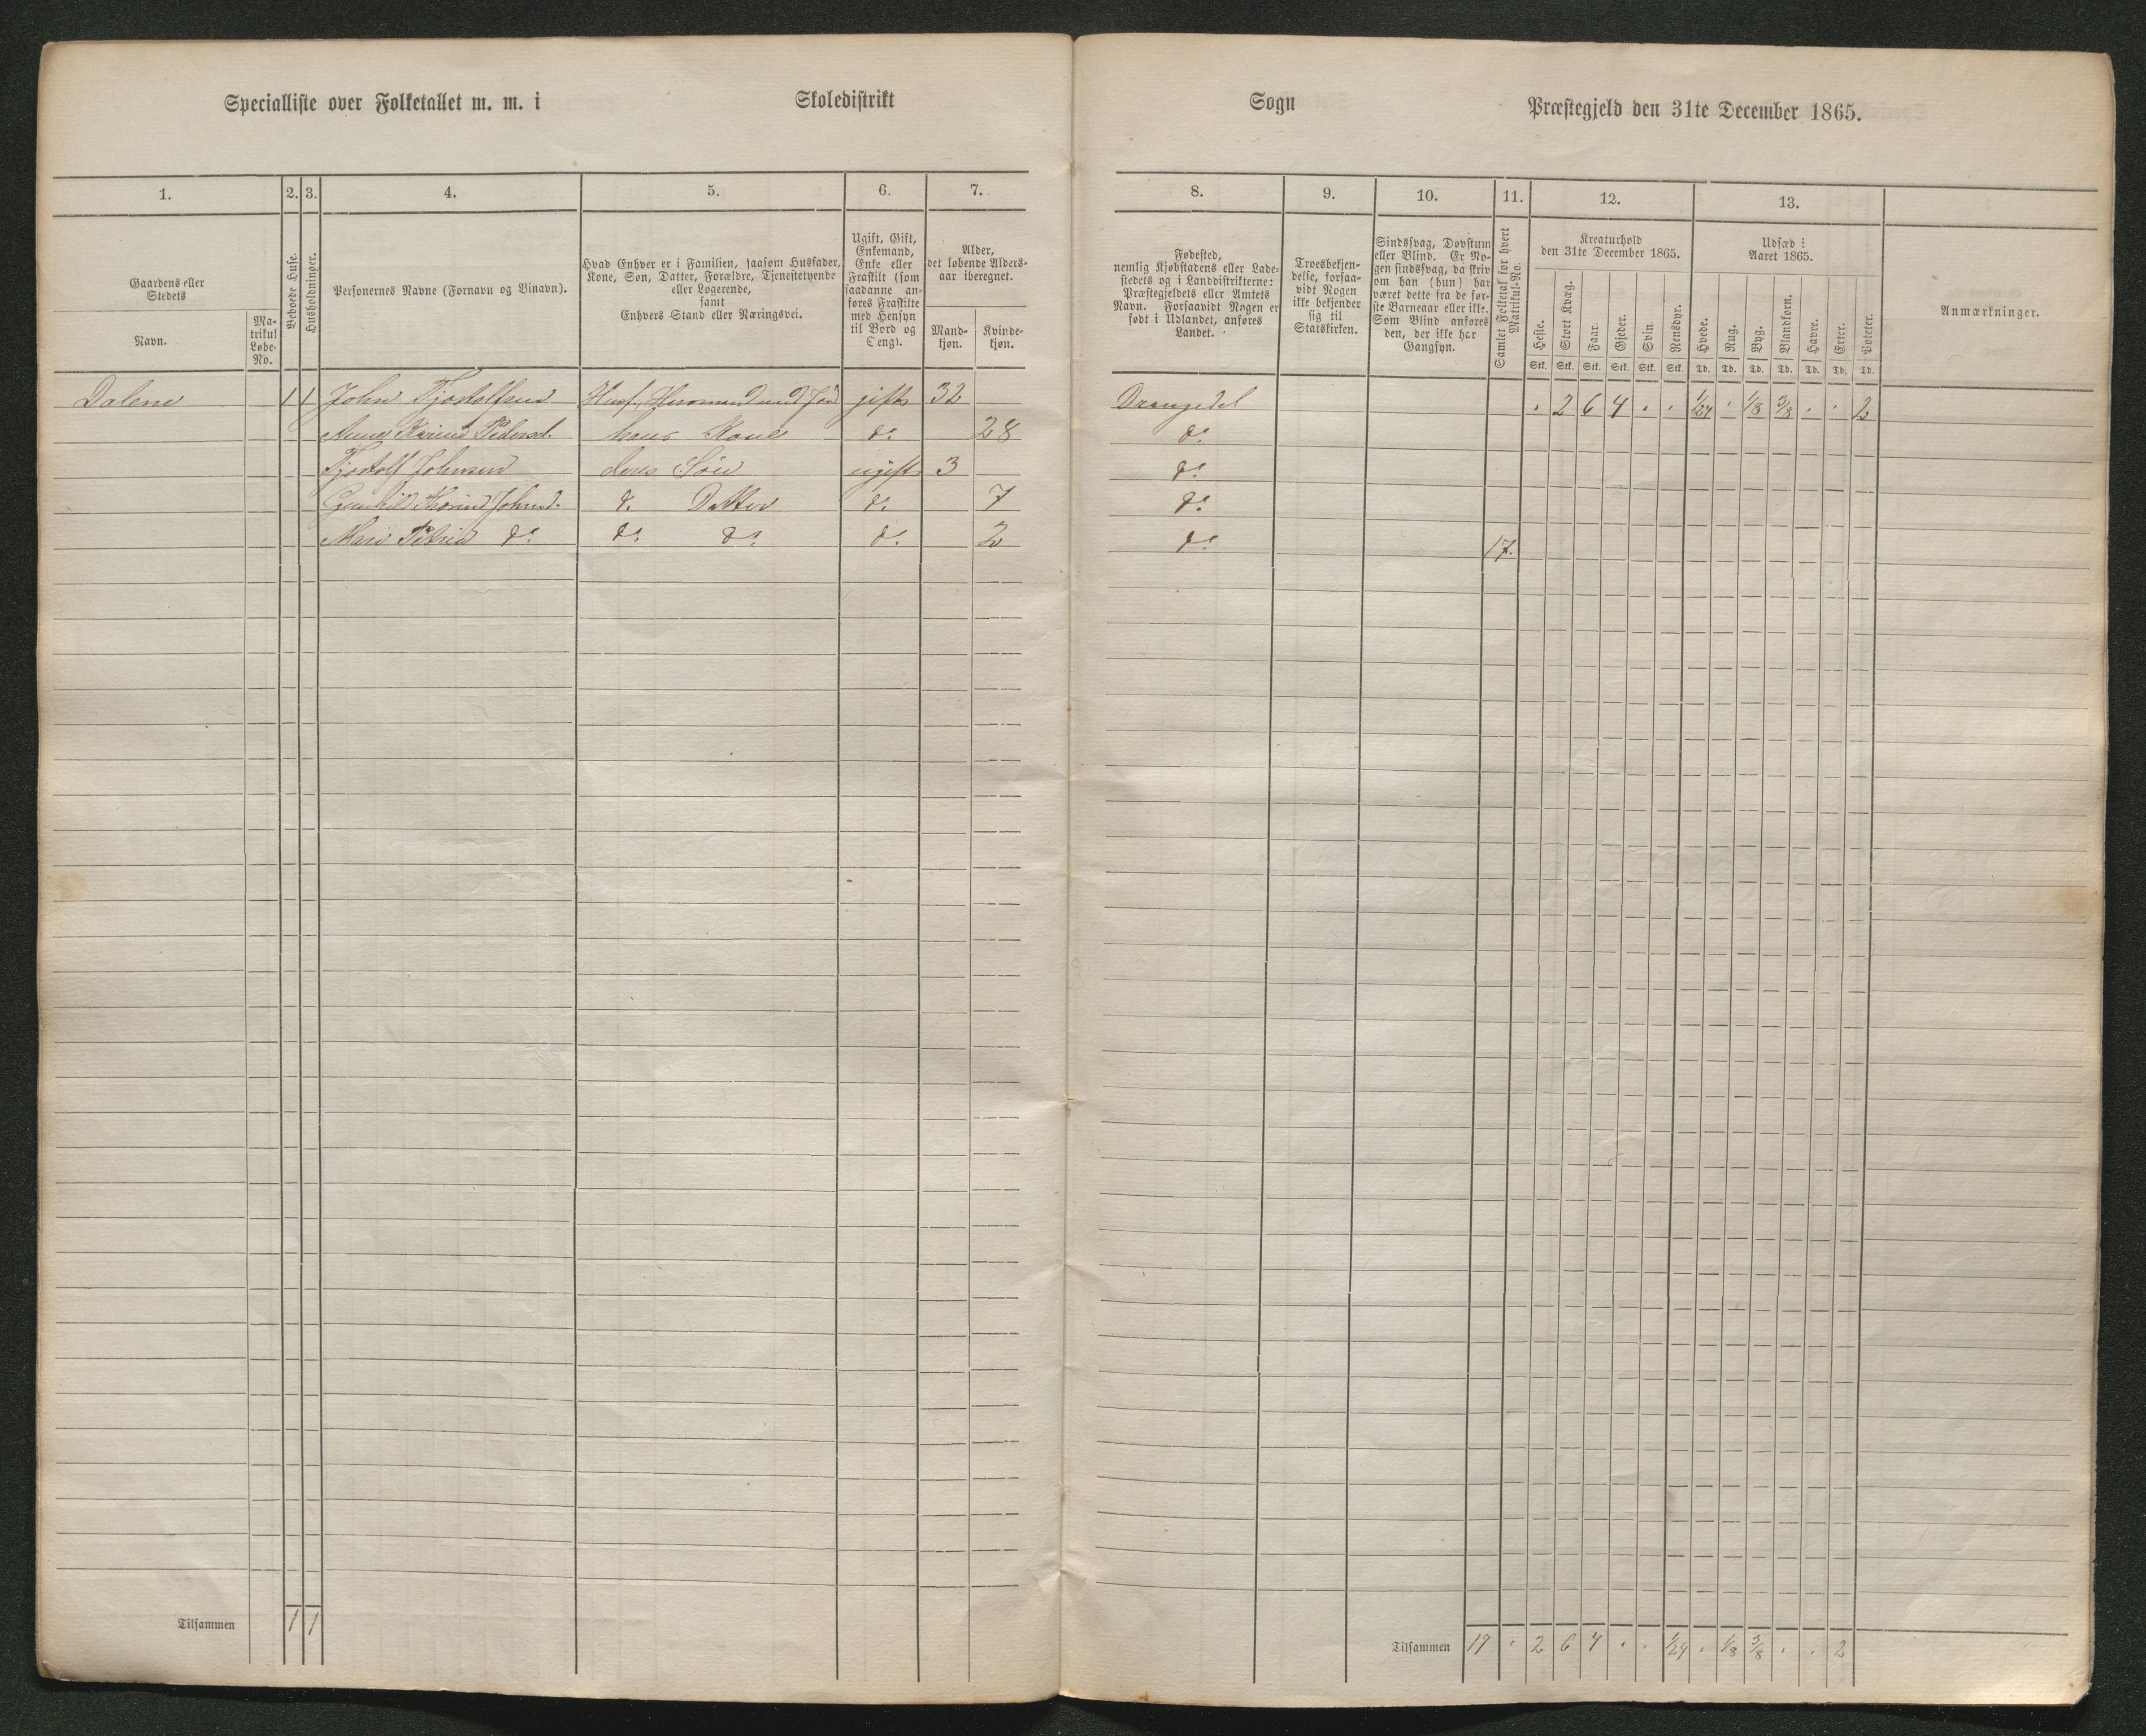 Specialliste over Folketallet m. m. i Skoledistrikt Sogn Præstegjeld den 31te December 1865.
1. 2. 3. 4. 5. 6. 7. 8. 9. 10. 11. 12. 13.
Gaardens eller
Stedets
Navn.
Ma-
trikul
Løbe-
No.
Beboede Huse.
Husholdninger.
Personernes Navne (Fornavn og Binavn).
Hvad Enhver er i Familien, saasom Husfader,
Kone, Søn, Datter, Forældre, Tjenestetyende
eller Logerende,
samt
Enhvers Stand eller Næringsvei.
Ugift, Gift,
Enkemand,
Enke eller
Fraskilt (som
saadanne an-
føres Fraskilte
med Hensyn
til Bord og
Seng).
Alder,
det løbende Alders-
aar iberegnet.
Mand-
kjøn.
Kvinde-
kjøn.
Fødested,
nemlig Kjøbstadens eller Lade-
stedets og i Landdistrikterne:
Præstegjeldets eller Amtets
Navn. Forsaavidt Nogen er
født i Udlandet, anføres
Landet.
Troesbekjen-
delse, forsaa-
vidt Nogen
ikke bekjender
sig til
Statskirken.
Sindssvag, Døvstum
eller Blind. Er No-
gen sindssvag, da skriv
om han (hun) har
været dette fra de før-
ste Barneaar eller ikke.
Som Blind anføres
den, der ikke har
Gangsyn.
Samlet Folketal for hvert
Matrikul-No.
Kreaturhold
den 31te December 1865.
Heste. Stort Kvæg. Faar. Gjeder. Svin. Rensdyr.
Stk. Stk. Stk. Stk. Stk. Stk.
Udsæd i
Aaret 1865.
Hvede. Rug. Byg. Blandkorn. Havre. Erter. Poteter.
Td. Td. Td. Td. Td. Td. Td.
Anmærkninger.
Dalene 1 1 John Tjostolfsen Husf., Husmand med Jord gift 32 Drangedal . 2 6 4 . . 1/24 . 1/8 3/8 . . 2
Anne Karine Pedersd. hans Kone do 28 do
Tjostolf Johnsen deres Søn ugift 3 do
Gunhild Thorine Johnsd. d. Datter do 7 do
Mari Petrine do do do do 2 do 17.
Tilsammen 1 1
Tilsammen 17 . 2 6 4 . . 1/24 . 1/8 3/8 . . 2